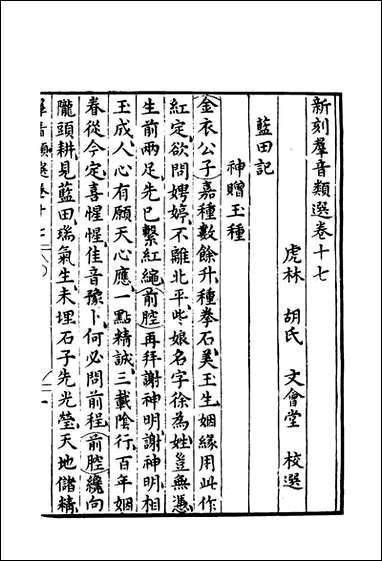 新刻羣音類選卷十七
虎林 胡氏 文會堂 校選
藍田記
神贈玉種
金衣公子嘉種數餘升種拳石美玉生姻緣用此作
紅定欲問娉婷不離北平些娘名字徐為姓豈無憑
生前兩足先已繫紅繩前腔再拜謝神明謝神明相
玉成人心有願天心應一點精誠三載陰行百年姻
眷從今定喜惺惺佳音豫卜何必問前程前腔纔向
隴頭耕見藍田瑞氣生未埋石子先光瑩天地儲精
羣音類選卷十七